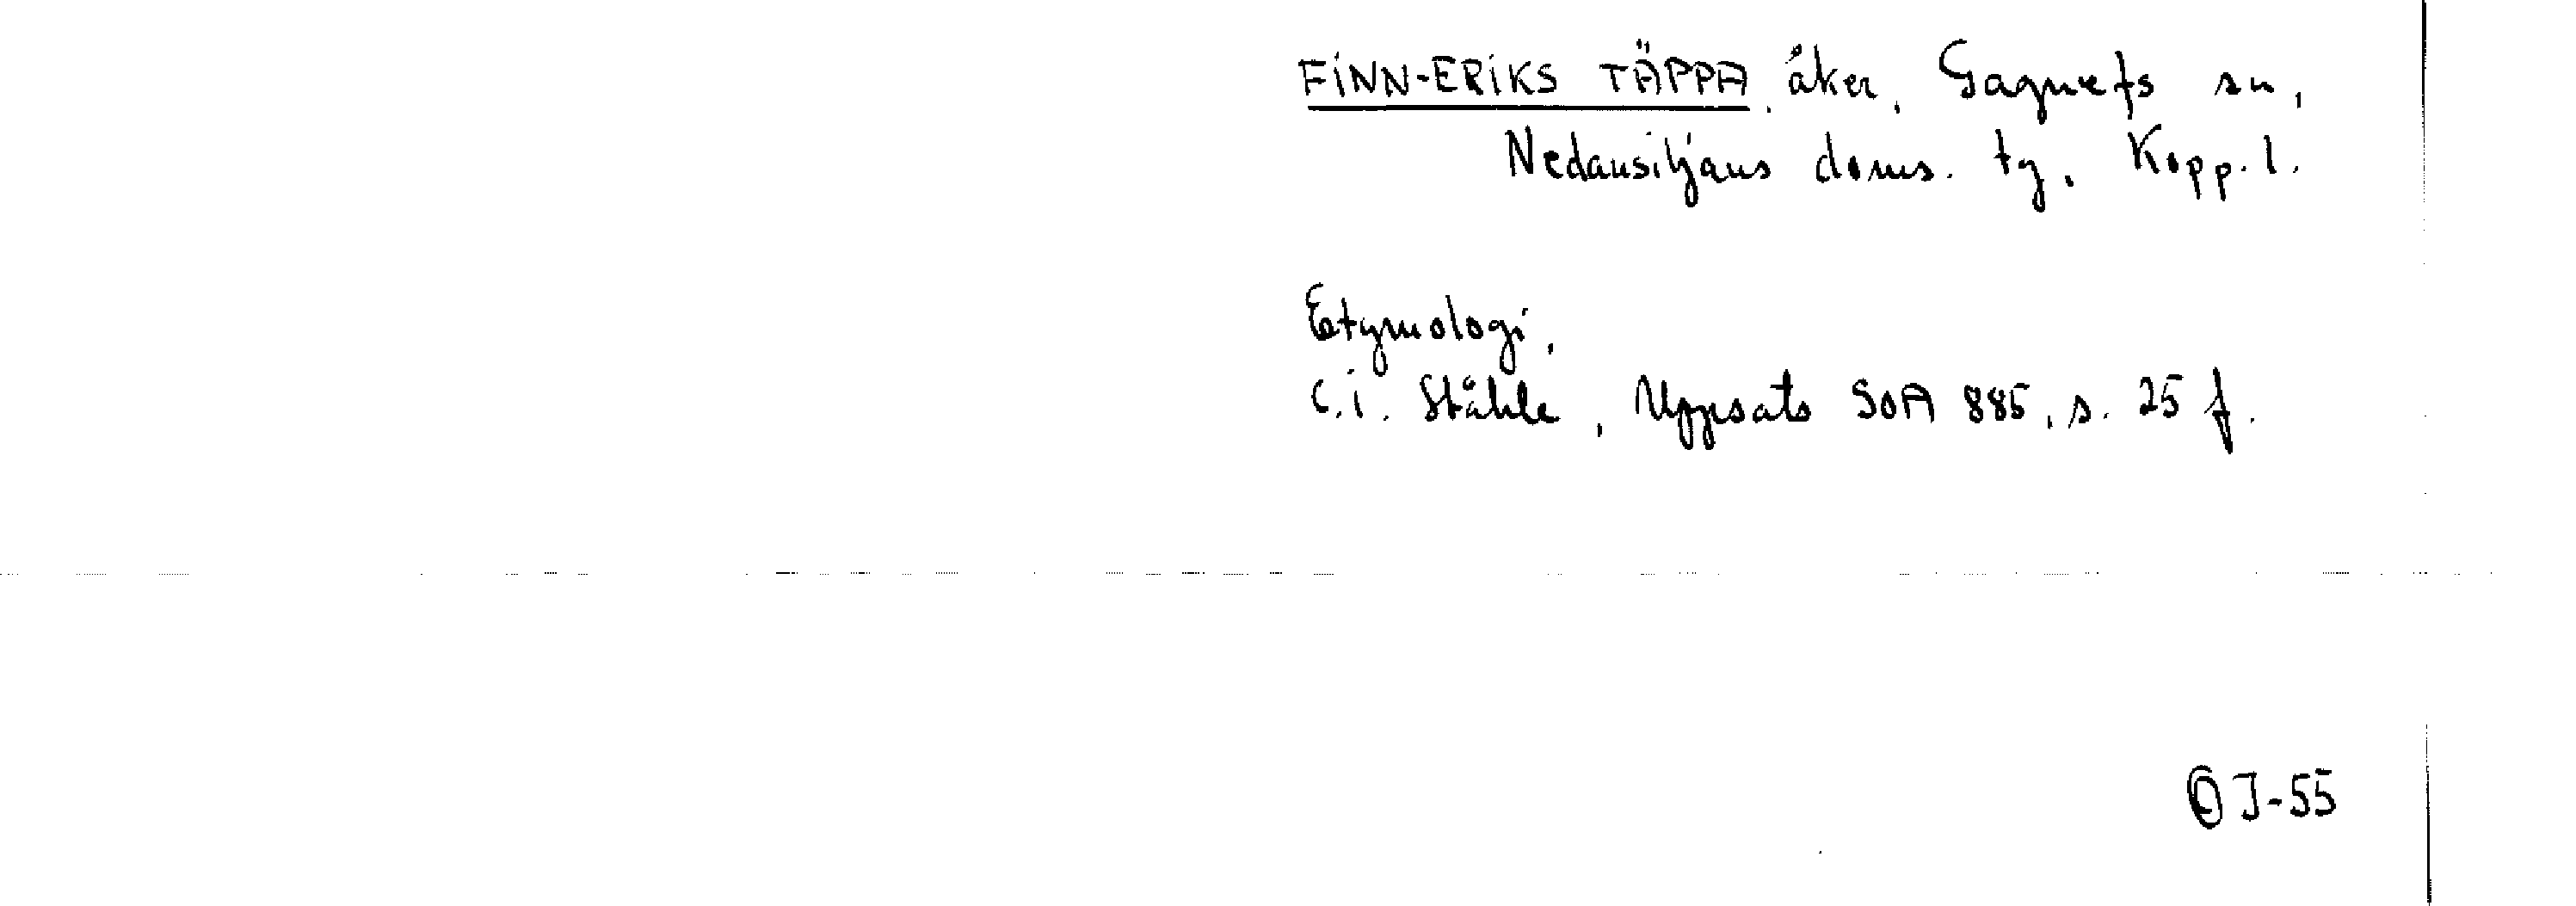 FINN-ERIKS TÄPPA, åker, Gagnefs sn,
Nedansiljans doms. tg, Kopp. l.
Etymologi.
C.I. Ståhle, Uppsats SOA 885, s. 25 f.
OJ-55